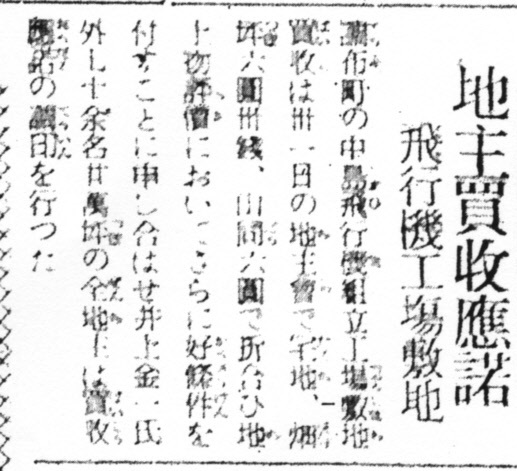 地主買收應諾
飛行機工場敷地
調布町の中島飛行機組立工場敷地
買收は卅一日の地主會で宅地、畑
坪六圓卅錢、山同六圓で折合ひ地
上物評價においてさらに好條件を
付すことに申し合はせ井上金一氏
外七十余名廿萬坪の全地主は買收
應諾の調印を行つた